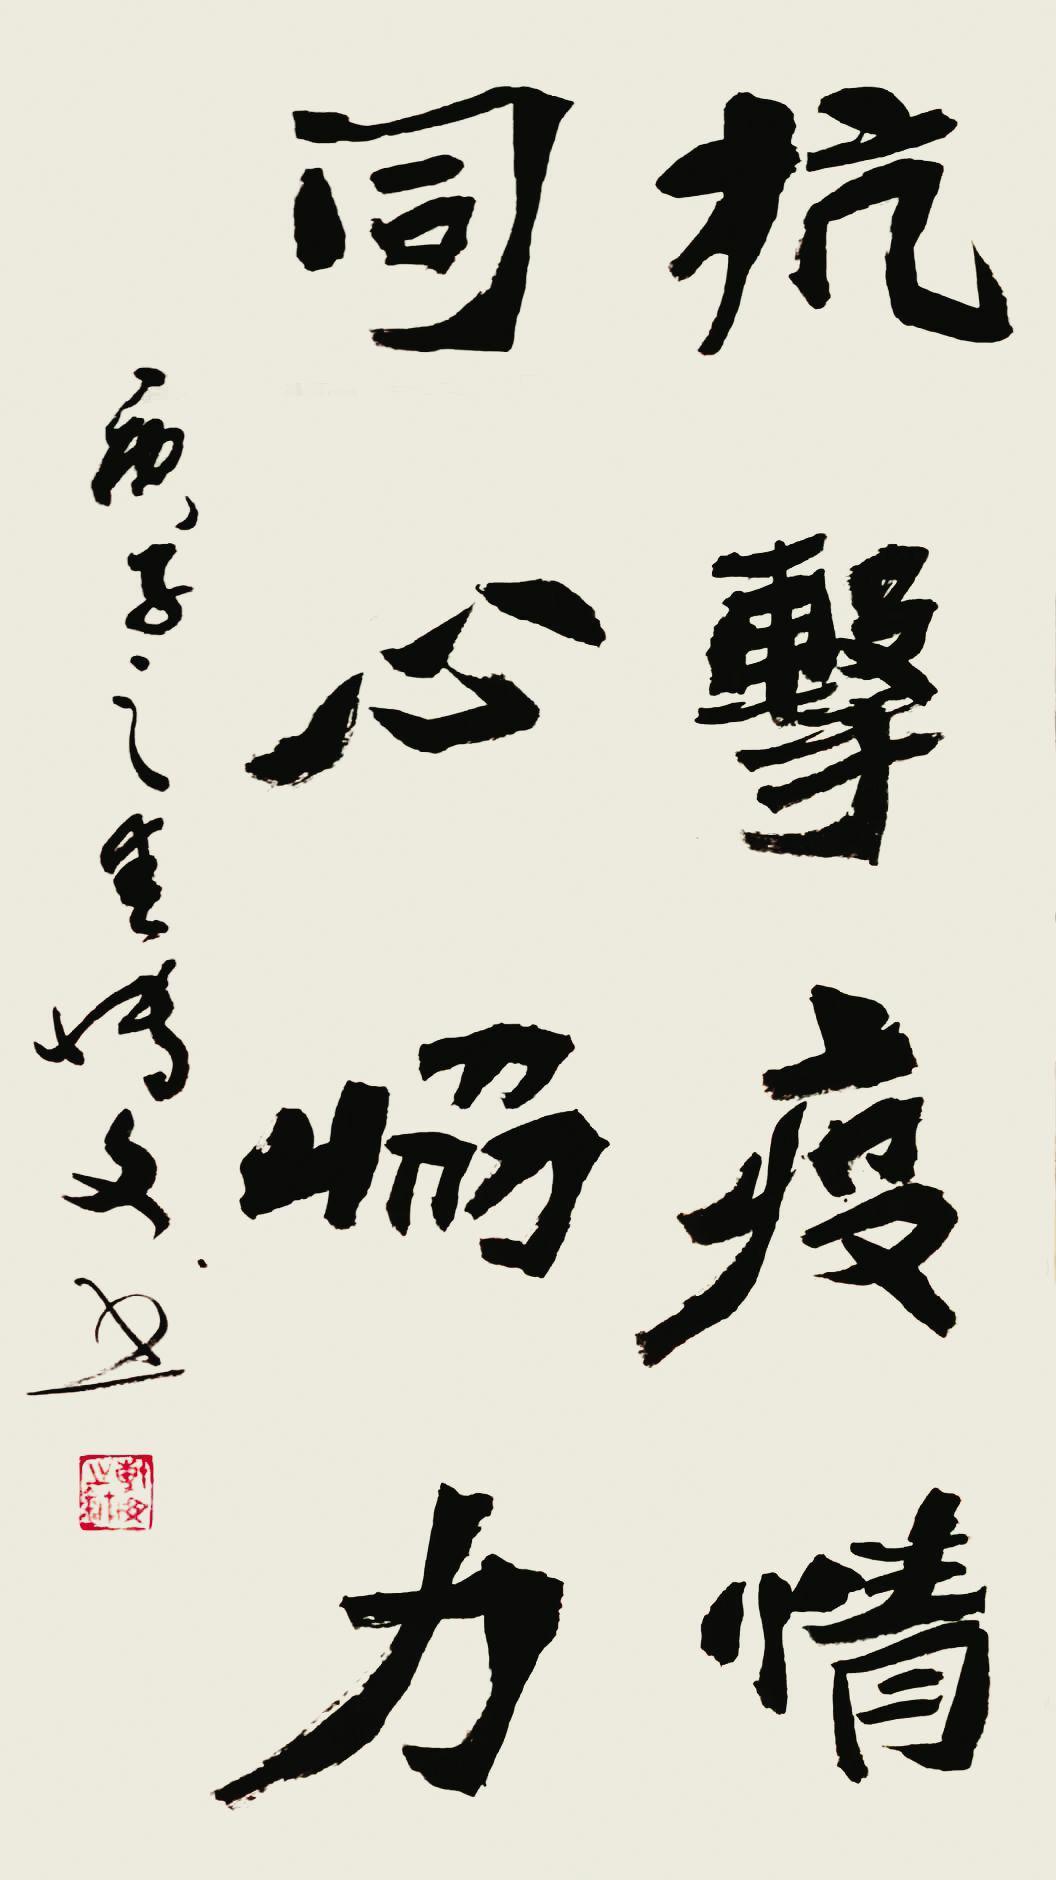 抗擊疫情
同心協力
庚子之春博文书